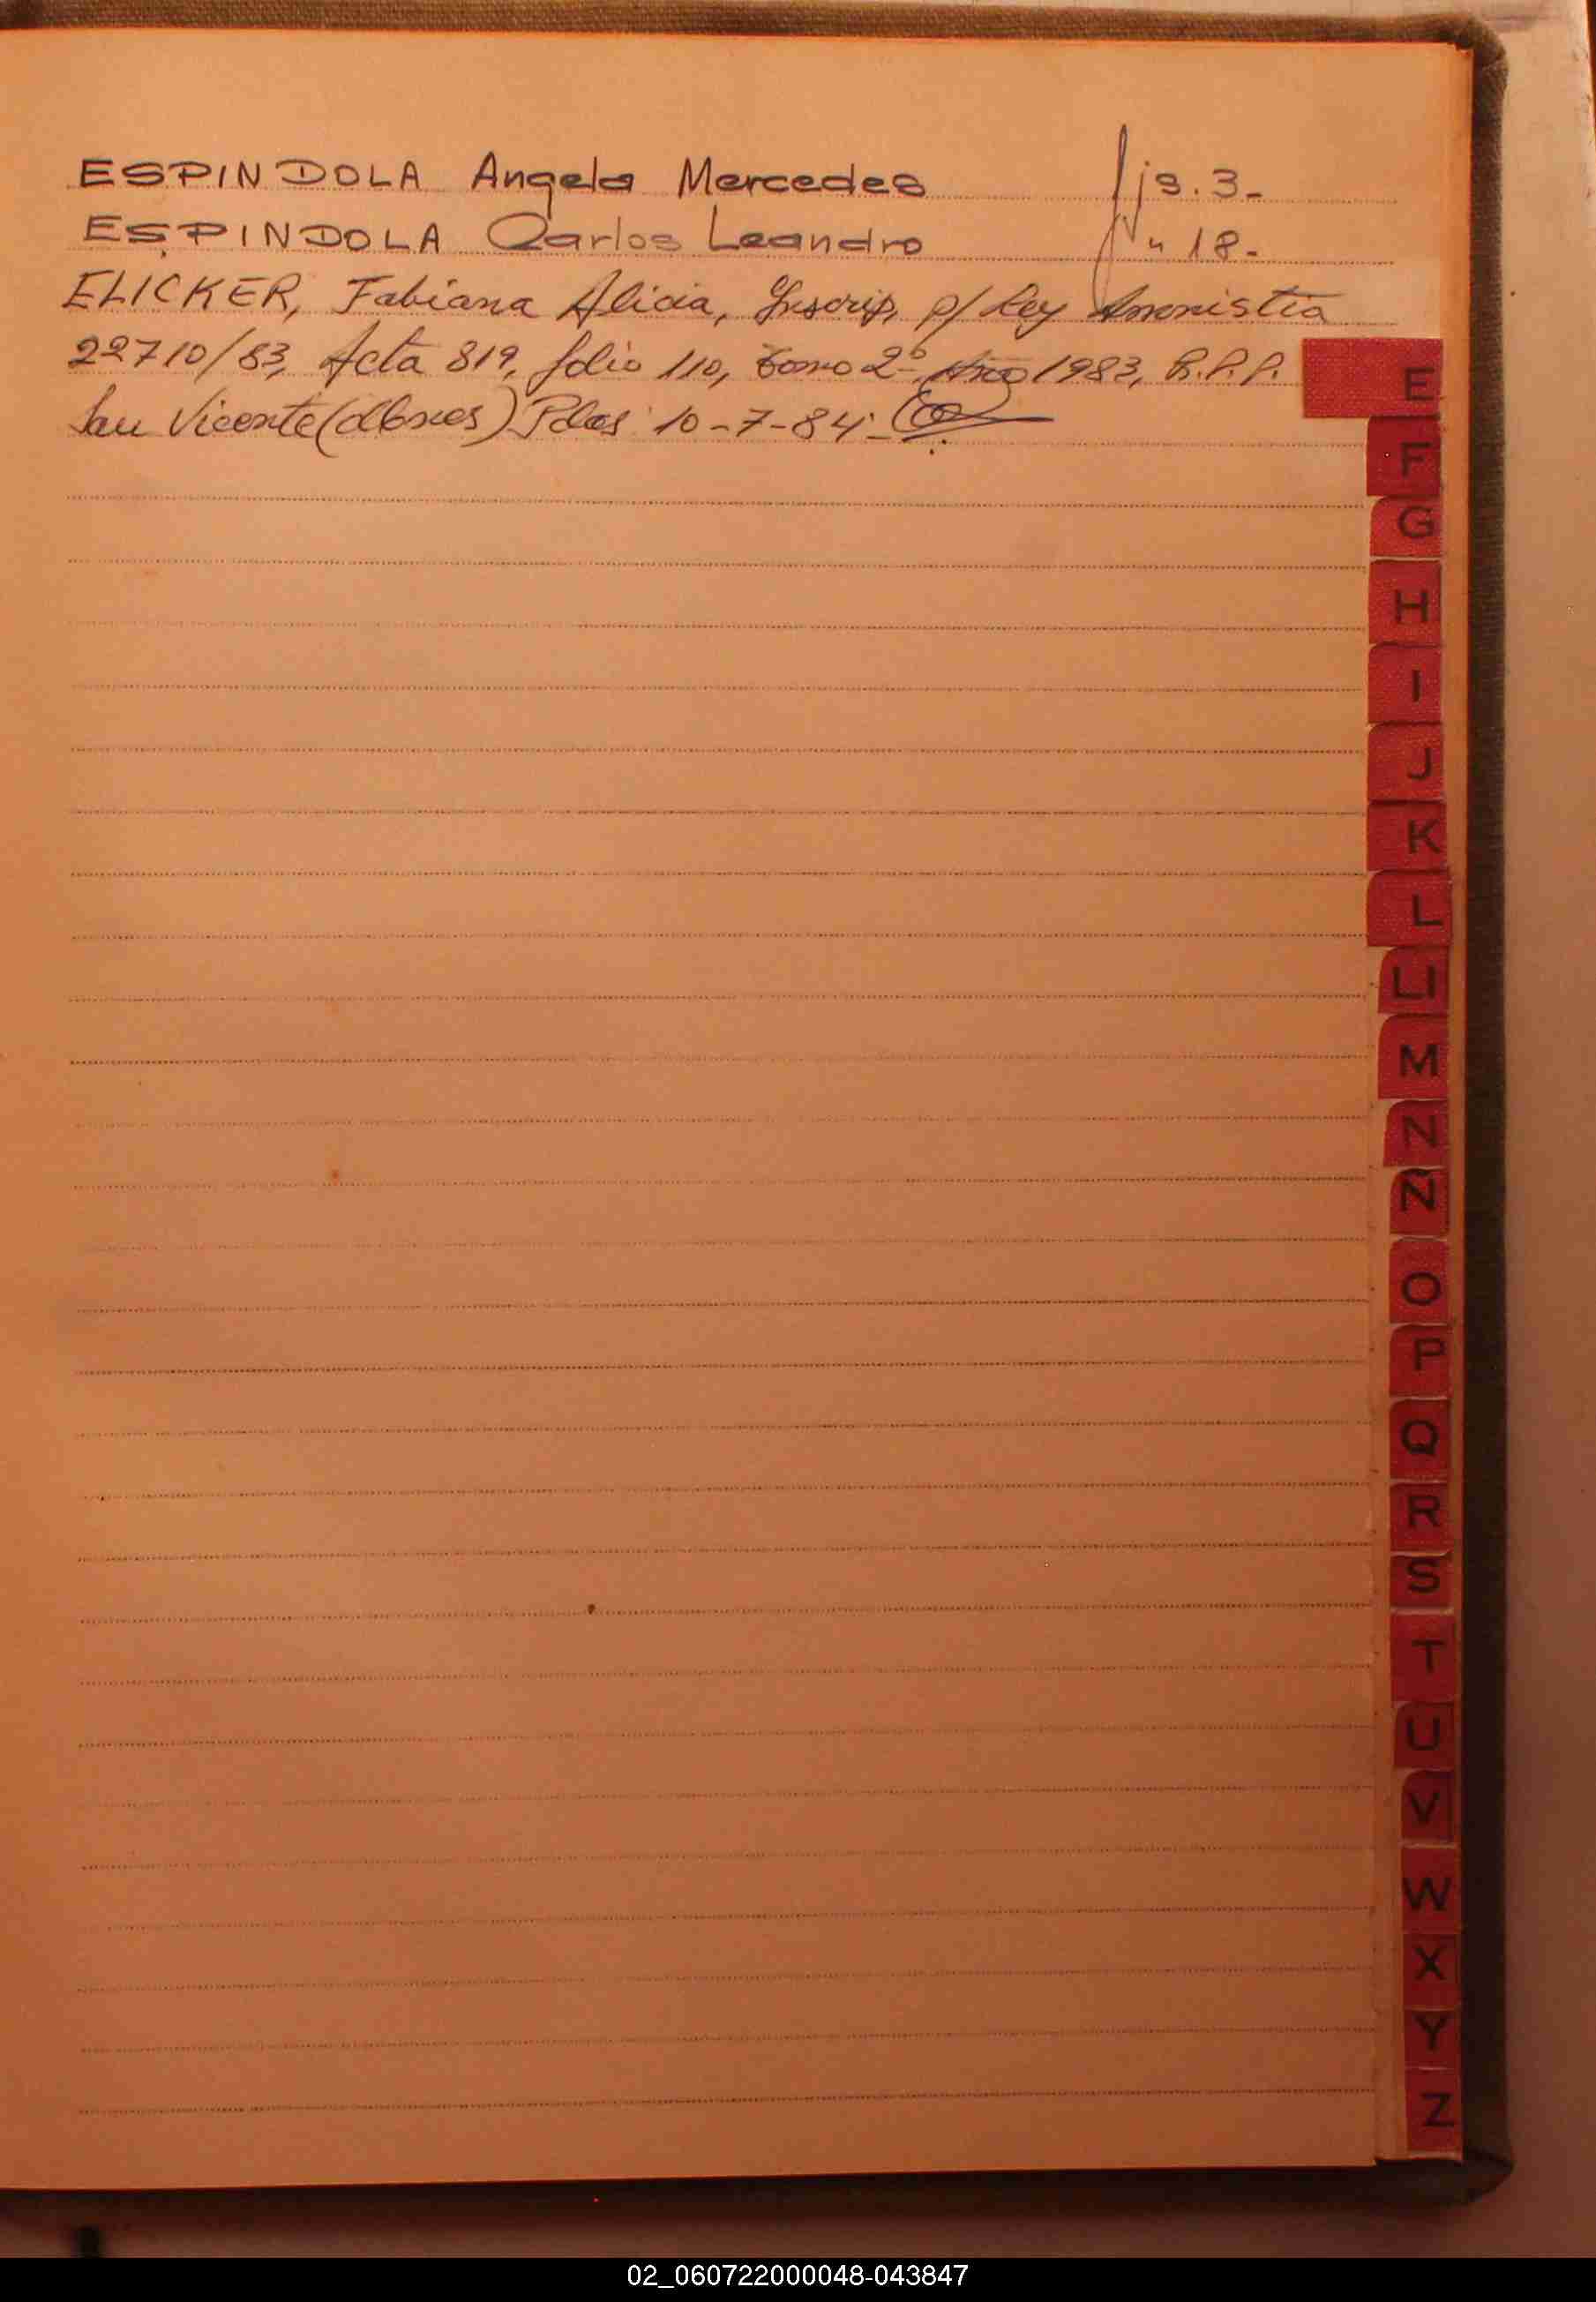 ESPINDOLA Angela Mercedes fjs. 3-
ESPINDOLA Carlos Leandro " 18-
ELICKER, Fabiana Alicia, Inscrip, p/ Ley Amnistia
22710/83, Acta 819, folio 110, Tomo 2º, Año 1983, R.P.P.
San Vicente (Mnes) Pdas 10-7-84-
E
F
G
H
I
J
K
L
LL
M
N
Ñ
O
P
Q
R
S
T
U
V
W
X
Y
Z
02_060722000048-043847